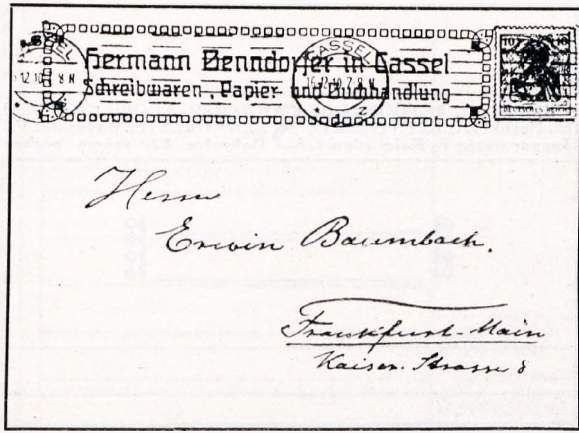 Hermann Benndorfer in Cassel
Schreibwaren-, Papier- und Buchhandlung
CASSEL
16.12.10. 7-8 N
Herrn
Erwin Baumbach.
Frankfurt-Main
Kaiser-Strasse 8